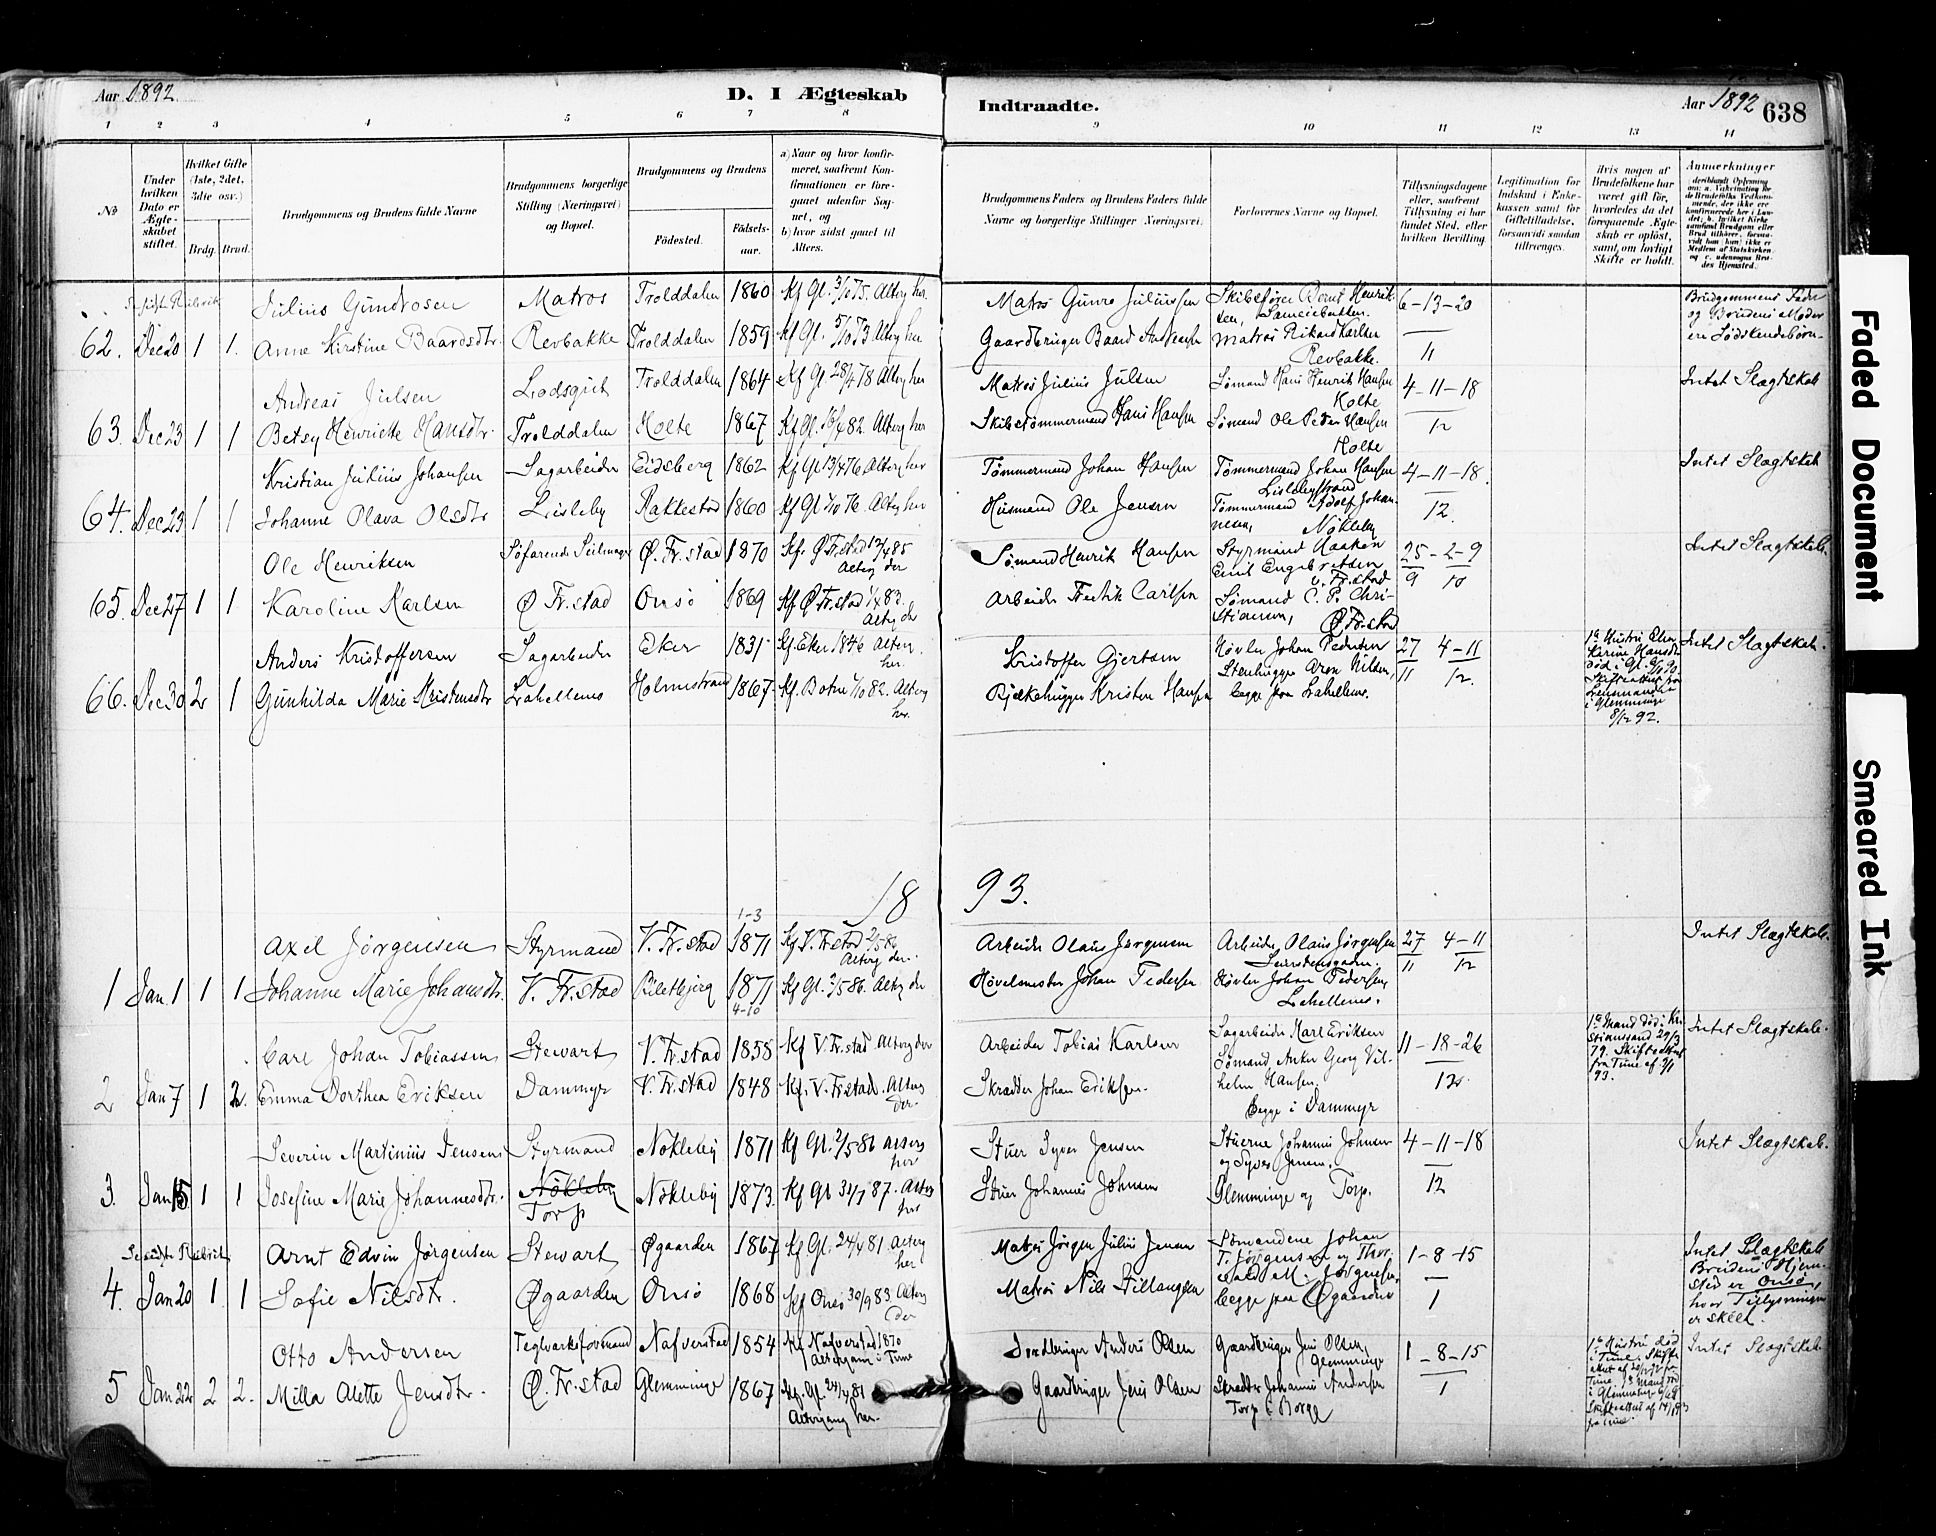 Aar 1892
D. I Ægteskab
Indtraadte.
Aar 1892 638
1 2 3 4 5 6 7 8 9 10 11 12 13 14
No
Under hvilken Dato er Ægteskabet stiftet.
Hvilket Gifte (1ste, 2det, 3die osv.)
Brdg. Brud.
Brudgommens og Brudens fulde Navne
Brudgommens borgerlige Stilling (Næringsvei) og Bopæl.
Brudgommens og Brudens
Fødested. Fødselsaar.
a) Naar og hvor konfirmeret, saafremt Konfirmationen er foregaaet udenfor Sognet, og
b) hvor sidst gaaet til Alters.
Brudgommens Faders og Brudens Faders fulde Navne og borgerlige Stillinger (Næringsvei).
Forlovernes Navne og Bopæl.
Tillysningsdagene eller, saafremt Tillysning ei har fundet Sted, efter hvilken Bevilling.
Legitimation for Indskud i Enkekassen samt for Giftetilladelse, forsaavidt saadan tiltrænges.
Hvis nogen af Brudefolkene har været gift før, hvorledes da det foregaaende Ægteskab er opløst, samt om lovligt Skifte er holdt.
Anmærkninger
Julius Gundrosen Matros Trolddalen 1860 Kf Gl. Alterg her. Matros Gunro Juliussen Skibsfører Bernt Henriksen, 6-13-20 Brudgommens Fader og Brudens Moder ere Södskendebørn
62. Dec 20 1 1. Anne Kirstine Baardsdtr. Revbakke Trolddalen 1859 Kf Gl. 5/10 73 Alterg her Gaardbruger Baard Andersen Matros Rikard Karlsen Revbakke. 11
Andreas Julsen Lodsgut Trolddalen 1864 Kf Gl. 28/4 78 Alterg her Matros Julius Julsen Sømand Hans Henrik Hansen Holte 4-11-18 Intet Slagtskab
63. Dec 23 1 1 Betsy Henriette Hansdtr. Trolddalen Holte 1867 Kf Gl. 16/4 82. Alterg her Skibstømmermand Hans Hansen Sømand Ole Peder Hansen Holte 12
Kristian Julius Johansen Sagarbeider Eidsberg 1862 Kf Gl 13/4 76 Alterg her Tømmermand Johan Hansen Tømmermand Johan Hansen Lislebystrand 4-11-18. Intet Slagtskab
64. Dec 23 1 1 Johanne Olava Olsdtr Lisleby Rakkestad 1860 Kf Gl 1/10 76. Alterg her Husmand Ole Jensen Tømmermand Adolf Johannesen, Nökleby 12.
Ole Henriksen Söfarende Ø. Fr.stad 1870 Kf. Ø Fr.stad 12/4 85 Alterg der Sømand Henrik Hansen Styrmand Haaken Emil Engebretsen v. Fr.stad 25-2-9 9 10 Intet Slagtskab.
65. Dec 27 1 1. Karoline Karlsen Ø Fr.stad Onsö 1869 Kf Ø Fr.stad 83. Alterg der Arbeider Fredrik Carlsen Sømand C. P. Christiansen, Ø Fr.stad
Anders Kristoffersen Sagarbeider Eker 1831 Kf. Eker 1846 Alterg. her. Kristoffer Gjertsen Høvler Johan Pedersen 27 4-11 1e Hustru Elen Karine Hansdtr död i Gl. Intet Slagtskab.
66. Dec 30 2 1 Gunhilda Marie Kristensdtr Lahellems Holmestrand 1867 Kf. Botne 1/10 82. Alterg her. Bjælkehugger Kristen Hansen Stenhugger Aron Nilsen, begge paa Lahellems. 11 12. Skifteattest fra Lensmanden i Glemminge 8/12 92.
1893.
1-3
Axel Jørgensen Styrmand V. Fr.stad 1871 Kf V. Fr.stad Alterg der. Arbeider Olaus Jørgensen Arbeider Olaus Jørgensen 27 4-11 Intet Slagtskab.
1 Jan 1 1 1 Johanne Marie Johansdtr. V. Fr.stad Kiletbjerg 1871 4-10 Kf Gl. 2/5 86. Alterg der Høvelmester Johan Pedersen Høvler Johan Pedersen, Lahellems. 11 12
Carl Johan Tobiassen Stewart V. Fr.stad 1858 Kf V. Fr.stad Alterg der Arbeider Tobias Karlsen Sagarbeider Karl Eriksen 11-18-26 1e Mand död i Kristianssand 29/3 79. Skifteattest fra Tune af 2/1 93. Intet Slagtskab.
2 Jan 7 1 2. Emma Dorthea Eriksen Dammyr V. Fr.stad 1848 Kf. V. Fr.stad. Alterg der. Skrædder Johan Eriksen. Sømand Anker Georg Vilhelm Hansen. Begge i Dammyr 12.
Severin Martinius Jensen Styrmand Nökleby 1871 Kf Gl. 2/5 86 Alterg her Stuer Syver Jensen Stuerne Johannes Johnsen og Syver Jensen. 4-11-18 Intet Slagtskab.
3. Jan 15 1 1 Josefine Marie Johannesdtr. Nökleby Torp Nökleby 1873. Kf Gl 31/7 87. Alterg her Stuer Johannes Johnsen Glemminge og Torp. 12
Arnt Edvin Jørgensen Stewart Øgaarden 1867 Kf Gl. 24/4 81 Alterg her Matros Jørgen Julius Jensen Sømandene Johan T. Jørgensen og Thorvald M. Jørgensen, 1-8-15 Intet Slagtskab Brudens Hjemsted er Onsö,
4. Jan 20 1 1 Sofie Nilsdtr. Øgaarden Onsö 1868 Kf Onsö 30/9 83 Alterg der Matros Nils begge paa Øgaarden 1 hvor Tillysningen er skeet.
Otto Andersen Teglværksformand Nafverstad 1854 Kf Nafverstad 1870 Altergang i Tune Anders Olsen Gaardbruger Jens Olsen, Glemminge 1-8-15 1e Hustru död i Tune. Intet Slagtskab.
5 Jan 22 2 2. Milla Alette Jensdtr. Ø. Fr.stad Glemminge 1867 Kf. Gl. 24/4 81 Altergang her. Gaardbruger Jens Olsen Skrædder Johannes Andersen Torp i Borge 1
Faded Document
Smeared Ink